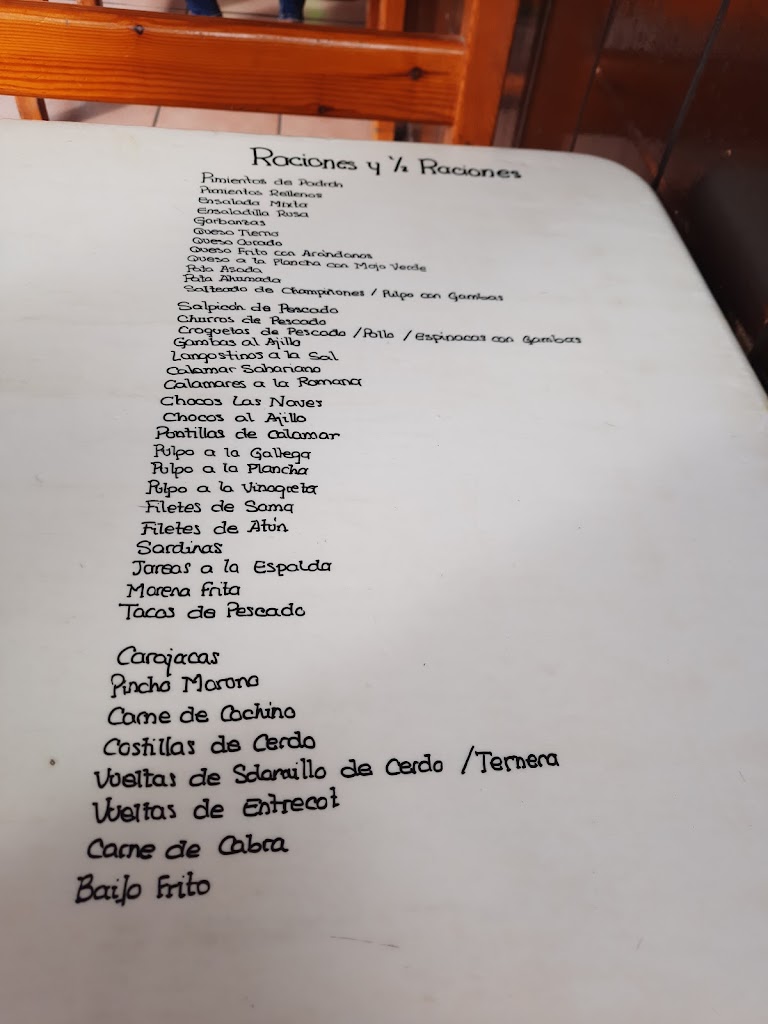 Raciones y 1/2 Raciones
Pimientos de Padrón
Pimientos Rellenos
Ensalada Mixta
Ensaladilla Rusa
Garbanzas
Queso Tierno
Queso Curado
Queso Frito con Arándanos
Queso a la Plancha con Mojo Verde
Pata Asada
Pata Ahumada
Salteado de Champiñones / Pulpo con Gambas
Salpicón de Pescado
Churros de Pescado
Croquetas de Pescado / Pollo / Espinacas con Gambas
Gambas al Ajillo
Langostinos a la Sal
Calamar Sahariano
Calamares a la Romana
Chocos Las Naves
Chocos al Ajillo
Puntillas de Calamar
Pulpo a la Gallega
Pulpo a la Plancha
Pulpo a la Vinagreta
Filetes de Sama
Filetes de Atún
Sardinas
Jareas a la Espalda
Morena Frita
Tacos de Pescado
Carajacas
Pincho Moruno
Carne de Cochino
Costillas de Cerdo
Vueltas de Solomillo de Cerdo / Ternera
Vueltas de Entrecot
Carne de Cabra
Baifo Frito